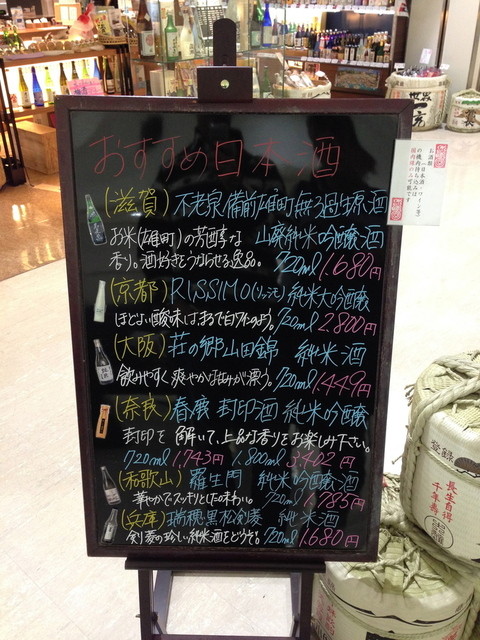 おすすめ日本酒
(滋賀) 不老泉 備前雄町 無ろ過生原酒
お米(雄町)の芳醇な 山廃純米吟醸酒
香り。酒好きをうならせる逸品。 720ml 1,680円
(京都) RISSIMO(リッシモ) 純米大吟醸
ほどよい酸味はまるで白ワインのよう。 720ml 2,800円
(大阪) 荘の郷 山田錦 純米酒
飲みやすく爽やかな旨みが漂う。 720ml 1,449円
(奈良) 春鹿 封印酒 純米吟醸
封印を解いて、上品な香りをお楽しみ下さい。
720ml 1,743円 1,800ml 3,402円
(和歌山) 羅生門 純米吟醸酒
華やかでスッキリとした味わい。 720ml 1,785円
(兵庫) 瑞穂黒松剣菱 純米酒
剣菱の珍しい純米酒をどうぞ。 720ml 1,680円
お酒類
(日本酒・ワイン等)
の機内持ち込みは
国内線のみ可能です
登録
長生自得
千年壽